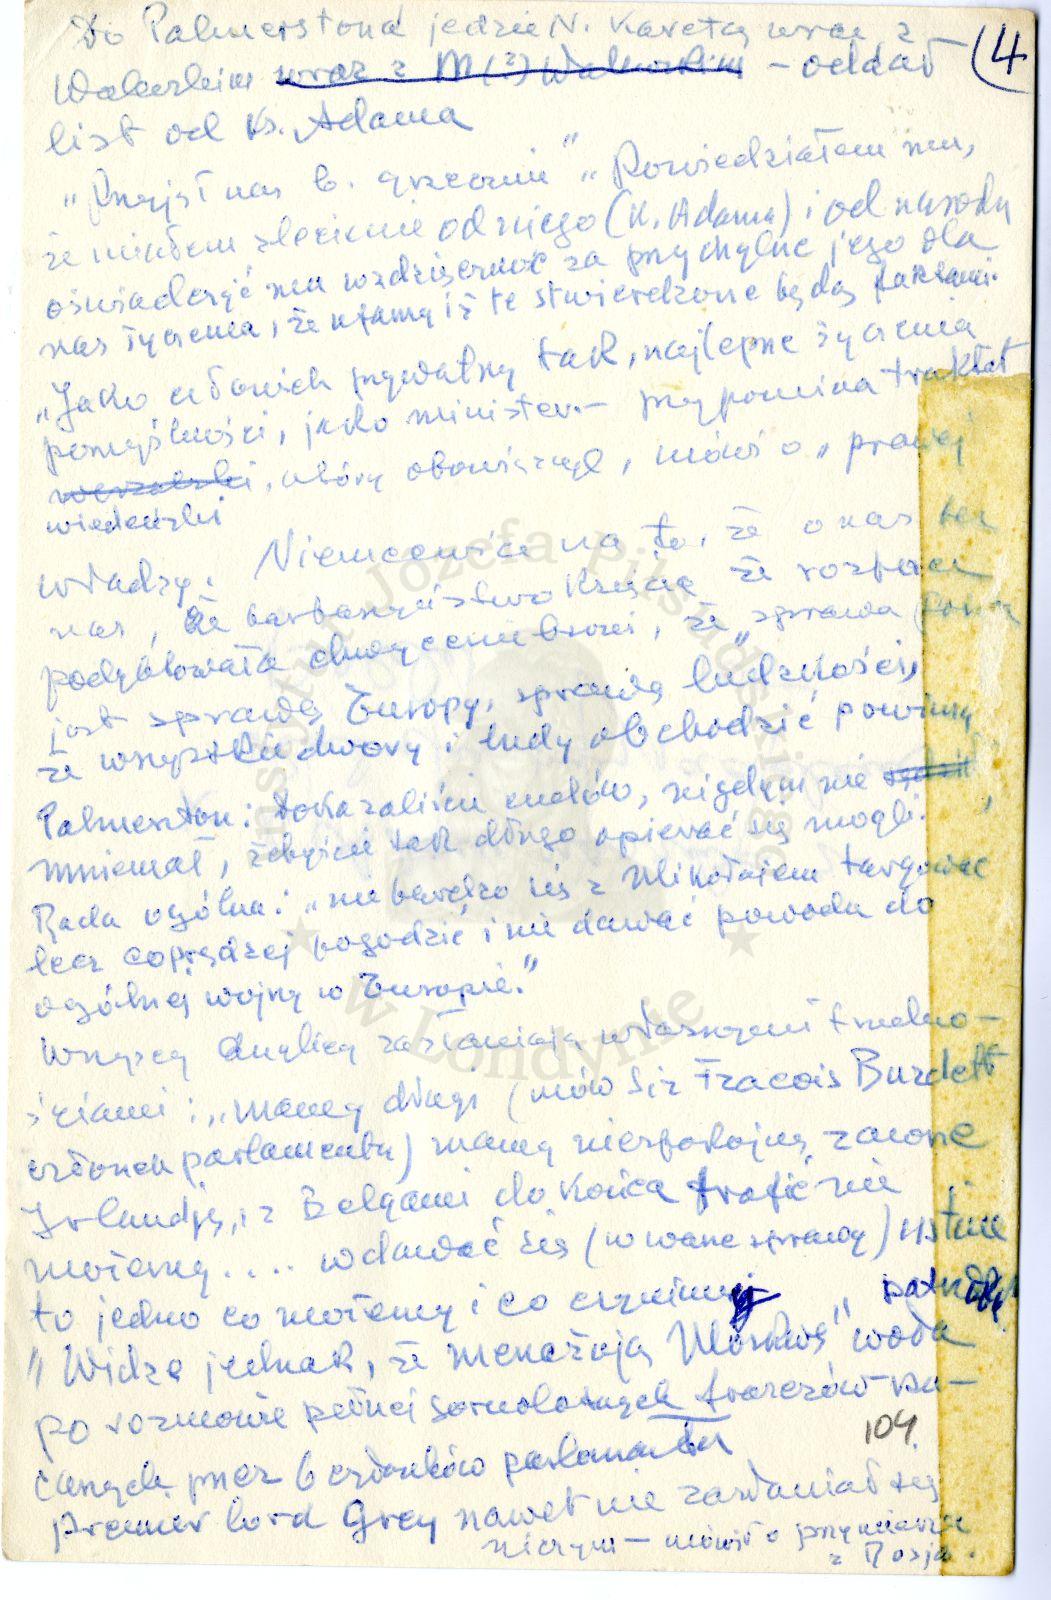 Do Palmerstona jedzie N. Karetą wraz z
Walewskim wraz z M(?) Walewskim – oddał
list od Ks. Adama
(4
"Przyjął nas b. grzecznie" "Powiedziałem mu,
że miałem zlecenie od niego (K. Adama) i od narodu
oświadczyć mu wdzięczność za przychylne jego dla
nas życzenia, że ufamy iż te stwierdzone będą faktami.
"Jako człowiek prywatny tak, najlepsze życzenia
pomyślności, jako minister – przypomina traktat
wersalski, który obowiązuje, mówi o "prawej
wiedeński
władzy. Niemcewicz na to, że o nas
nas, że barbarzyństwo Krzyżne że rozpacz
podyktowała chwycenie broni, że "sprawa
jest sprawą Europy, sprawą ludzkości,
że wszystkie dwory i ludy obchodzić powinna
Palmerston: Dokazaliście cudów, nigdym nie sądził
mniemał, żebyście tak długo opierać się mogli.
Rada ogólna: "nie bardzo się z Mikołajem targować
lecz coprędzej pogodzić i nie dawać powodu do
ogólnej wojny w Europie."
Wszyscy Anglicy zasłaniają własnymi trudno-
ściami: "mamy długi (mówi Sir Fracois Burdett
członek parlamentu) mamy niespokojną zawsze
Irlandję, i z Belgami do końca trafić nie
możemy.... wdawać się (w wasze sprawy) ustnie
to jedno co możemy i co czynimy
"Widzę jednak, że menażują Moskwę" woła
po rozmowie pełnej frazesów rzu-
canych przez 6 członków parlamentu
104
premier lord Grey nawet nie zasłaniał się
niczym – mówił o przymierzu
z Rosją.
Instytut Józefa Piłsudskiego
w Londynie